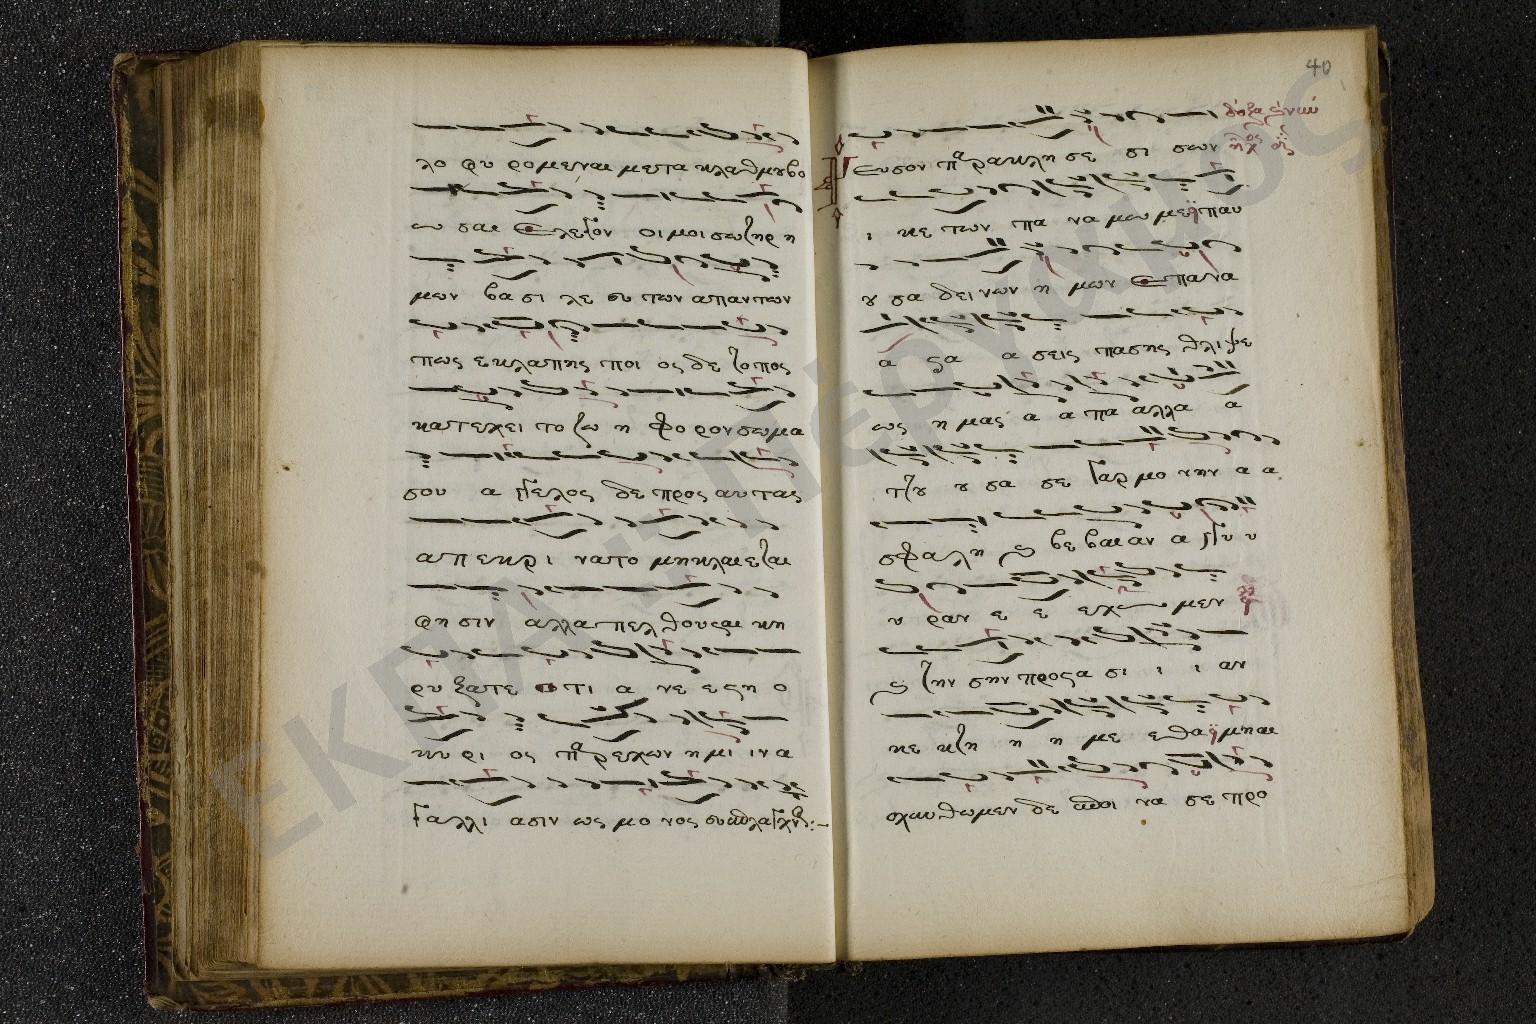 λο φυ ρομεναι μετα κλαθμου βο
ω σαι Ελεγον οιμοι σωτηρ η
μων βα σι λε ευ των απαντων
πως εκλαπης ποι ος δε τοπος
κατεχει το ζω η φο ρον σωμα
σου α γγελος δε προς αυτας
απεκρι νατο μη κλαιεται
φη σιν αλλα πελ θουσαι κη
ρυ ξατε οτι α νε εστη ο
κυρι ος παρεχων ημι ιν α
γαλλι ασιν ως μο νος ευσπλαγχνος :~
40
δόξα καὶ νῦν
ῆχος
ευσον παρακλη σε σι σων
ι κε των πα να μω με παυ
ου σα δει νων η μων Επανα
α στα α σεις πασης θλιψε
ως η μας α α πα αλλα α
ττου ου σα σε γαρ μο νην α α
σφαλη και βε βαι αν α γκυ υ
υ ραν ε ε εχω μεν
και την σην προστα σι ι ι αν
κε κτη η η με εθα μη αι
σχυνθωμεν δε σποι να σε προ
ΕΚΠΑ - Πέργαμος